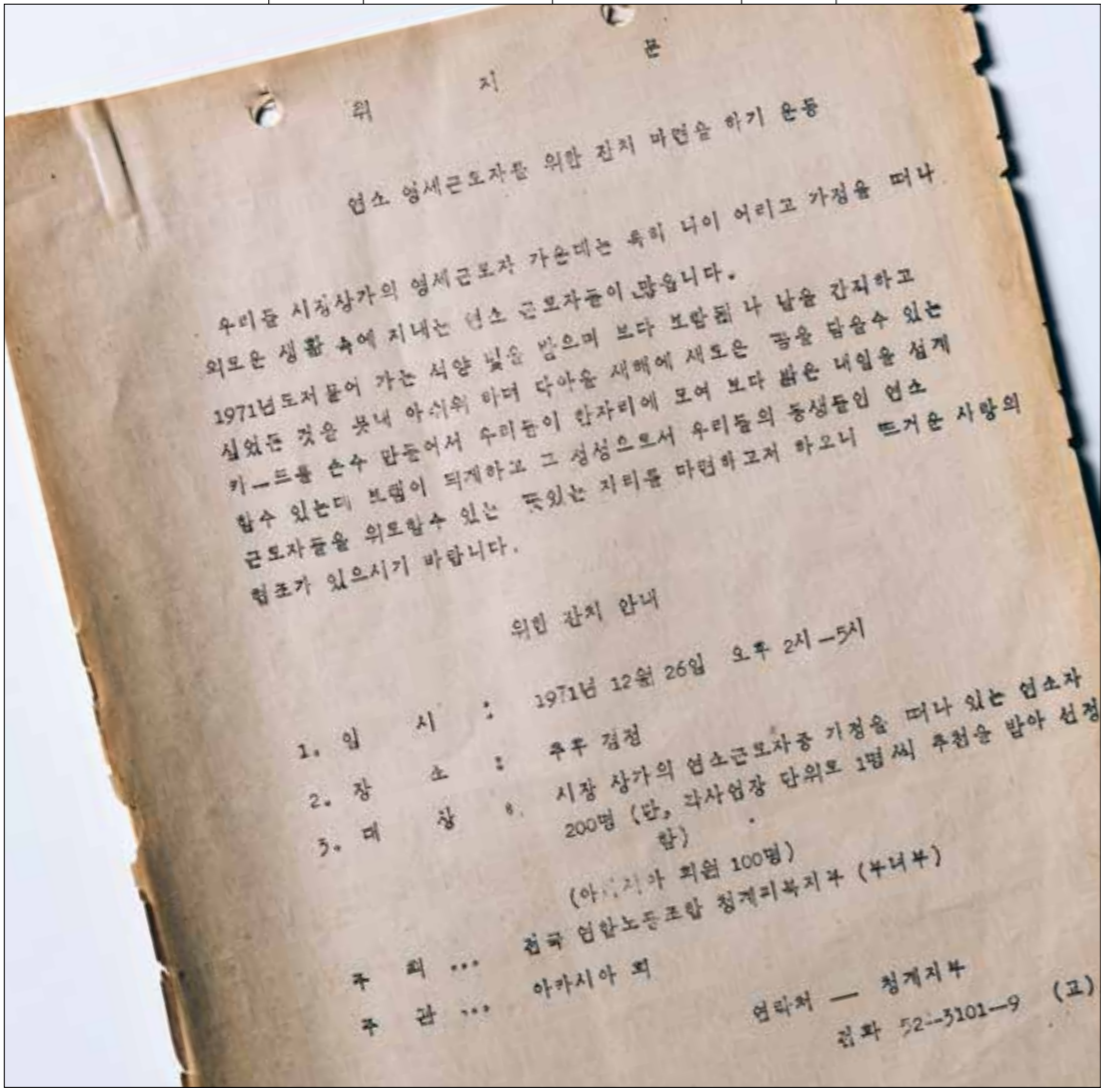 취 지 문
연소 영세근로자를 위한 잔치 마련을 하기 운동
우리들 시장상가의 영세근로자 가운데는 특히 나이 어리고 가정을 떠나
외로운 생활 속에 지내는 연소 근로자들이 많읍니다.
1971년도저물어 가는 석양 빛을 받으며 보다 보람된 나 날을 간직하고
싶었든 것을 못내 아쉬워 하며 닥아올 새해에 새로은 꿈을 담을수 있는
카ㅡ드를 손수 만들어서 우리들이 한자리에 모여 보다 밝은 내일을 설계
할수 있는데 보램이 되게하고 그 성성으로서 우리들의 동생들인 연소
근로자들을 위로할수 있는 뜻있는 자리를 마련하고저 하오니 뜨거운 사랑의
협조가 있으시기 바랍니다.
위한 잔치 안내
1. 일 시 : 1971년 12월 26일 오후 2시—5시
2. 장 소 : 추후 결정
3. 대 상 : 시장 상가의 연소근로자중 가정을 떠나 있는 연소자
200명 (단, 각사업장 단위로 1명씩 추천을 받아 선정
함)
(아카시아 회원 100명)
주 최 ... 전국 연합노동조합 청계피복지부 (부녀부)
주 관 ... 아카시아 회
연락처 — 청계지부
전화 52--5101—9 (교)